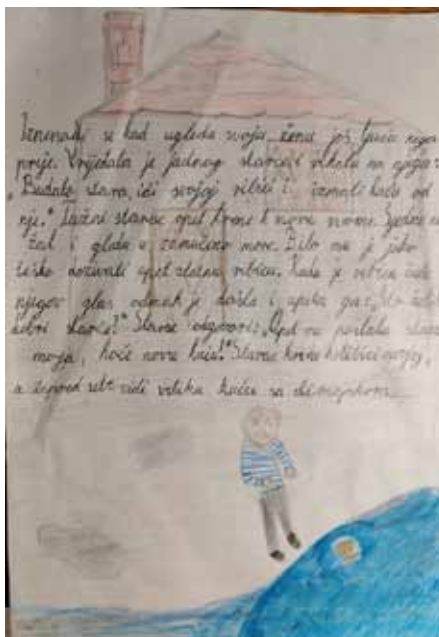 Iznenadi se kad ugleda svoju ženu još ljuću nego
prije. Vrijeđala je jadnog starca i vikala na njega:
„Budalo stara, idi svojoj ribici i izmoli kuću od
nje." Tužni starac opet krene k moru. Sjedne na
žal i gleda u zamućeno more. Bilo mu je jako
teško dozivati opet zlatnu ribicu. Kada je ribica čula
njegov glas odmah je došla i upita ga: „Što želiš
dobri starče?" Starac odgovori: „Opet me poslala stara
moja, hoće novu kuću!" Starac krene kolibici svojoj,
a ispred sebe vidi veliku kuću sa dimnjakom